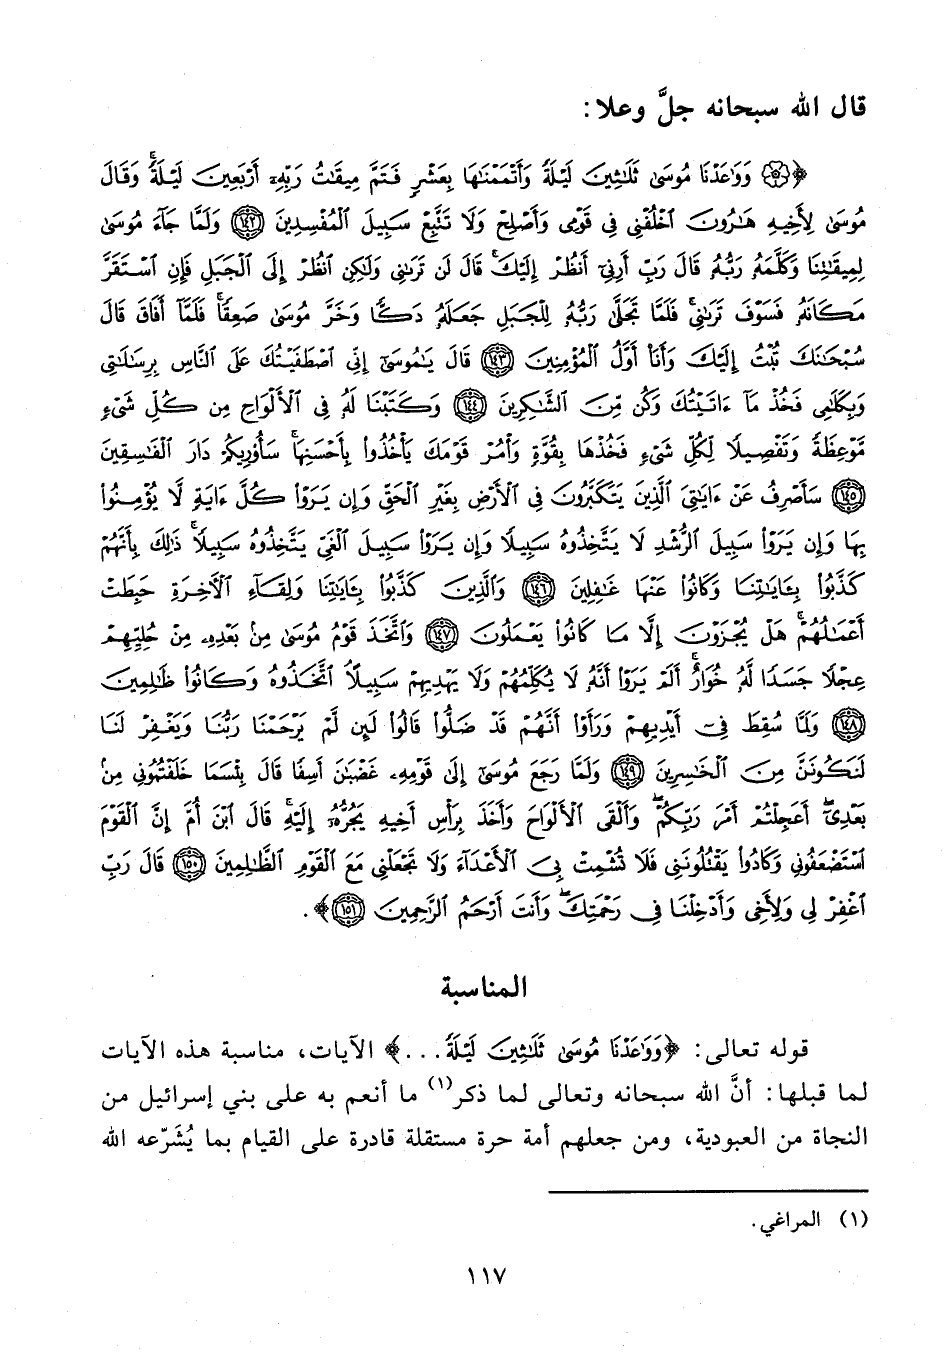 قال الله سبحانه جلَّ وعلا:
﴿۞ وَوَٰعَدْنَا مُوسَىٰ ثَلَٰثِينَ لَيْلَةً وَأَتْمَمْنَٰهَا بِعَشْرٍ فَتَمَّ مِيقَٰتُ رَبِّهِۦٓ أَرْبَعِينَ لَيْلَةً ۚ وَقَالَ
مُوسَىٰ لِأَخِيهِ هَٰرُونَ ٱخْلُفْنِى فِى قَوْمِى وَأَصْلِحْ وَلَا تَتَّبِعْ سَبِيلَ ٱلْمُفْسِدِينَ ﴿١٤٢﴾ وَلَمَّا جَآءَ مُوسَىٰ
لِمِيقَٰتِنَا وَكَلَّمَهُۥ رَبُّهُۥ قَالَ رَبِّ أَرِنِىٓ أَنظُرْ إِلَيْكَ ۚ قَالَ لَن تَرَىٰنِى وَلَٰكِنِ ٱنظُرْ إِلَى ٱلْجَبَلِ فَإِنِ ٱسْتَقَرَّ
مَكَانَهُۥ فَسَوْفَ تَرَىٰنِى ۚ فَلَمَّا تَجَلَّىٰ رَبُّهُۥ لِلْجَبَلِ جَعَلَهُۥ دَكًّا وَخَرَّ مُوسَىٰ صَعِقًا ۚ فَلَمَّآ أَفَاقَ قَالَ
سُبْحَٰنَكَ تُبْتُ إِلَيْكَ وَأَنَا۠ أَوَّلُ ٱلْمُؤْمِنِينَ ﴿١٤٣﴾ قَالَ يَٰمُوسَىٰٓ إِنِّى ٱصْطَفَيْتُكَ عَلَى ٱلنَّاسِ بِرِسَٰلَٰتِى
وَبِكَلَٰمِى فَخُذْ مَآ ءَاتَيْتُكَ وَكُن مِّنَ ٱلشَّٰكِرِينَ ﴿١٤٤﴾ وَكَتَبْنَا لَهُۥ فِى ٱلْأَلْوَاحِ مِن كُلِّ شَىْءٍ
مَّوْعِظَةً وَتَفْصِيلًا لِّكُلِّ شَىْءٍ فَخُذْهَا بِقُوَّةٍ وَأْمُرْ قَوْمَكَ يَأْخُذُوا۟ بِأَحْسَنِهَا ۚ سَأُو۟رِيكُمْ دَارَ ٱلْفَٰسِقِينَ
﴿١٤٥﴾ سَأَصْرِفُ عَنْ ءَايَٰتِىَ ٱلَّذِينَ يَتَكَبَّرُونَ فِى ٱلْأَرْضِ بِغَيْرِ ٱلْحَقِّ وَإِن يَرَوْا۟ كُلَّ ءَايَةٍ لَّا يُؤْمِنُوا۟
بِهَا وَإِن يَرَوْا۟ سَبِيلَ ٱلرُّشْدِ لَا يَتَّخِذُوهُ سَبِيلًا وَإِن يَرَوْا۟ سَبِيلَ ٱلْغَىِّ يَتَّخِذُوهُ سَبِيلًا ۚ ذَٰلِكَ بِأَنَّهُمْ
كَذَّبُوا۟ بِـَٔايَٰتِنَا وَكَانُوا۟ عَنْهَا غَٰفِلِينَ ﴿١٤٦﴾ وَٱلَّذِينَ كَذَّبُوا۟ بِـَٔايَٰتِنَا وَلِقَآءِ ٱلْءَاخِرَةِ حَبِطَتْ
أَعْمَٰلُهُمْ ۚ هَلْ يُجْزَوْنَ إِلَّا مَا كَانُوا۟ يَعْمَلُونَ ﴿١٤٧﴾ وَٱتَّخَذَ قَوْمُ مُوسَىٰ مِنۢ بَعْدِهِۦ مِنْ حُلِيِّهِمْ
عِجْلًا جَسَدًا لَّهُۥ خُوَارٌ ۚ أَلَمْ يَرَوْا۟ أَنَّهُۥ لَا يُكَلِّمُهُمْ وَلَا يَهْدِيهِمْ سَبِيلًا ۘ ٱتَّخَذُوهُ وَكَانُوا۟ ظَٰلِمِينَ
﴿١٤٨﴾ وَلَمَّا سُقِطَ فِىٓ أَيْدِيهِمْ وَرَأَوْا۟ أَنَّهُمْ قَدْ ضَلُّوا۟ قَالُوا۟ لَئِن لَّمْ يَرْحَمْنَا رَبُّنَا وَيَغْفِرْ لَنَا
لَنَكُونَنَّ مِنَ ٱلْخَٰسِرِينَ ﴿١٤٩﴾ وَلَمَّا رَجَعَ مُوسَىٰٓ إِلَىٰ قَوْمِهِۦ غَضْبَٰنَ أَسِفًا قَالَ بِئْسَمَا خَلَفْتُمُونِى مِنۢ
بَعْدِىٓ ۖ أَعَجِلْتُمْ أَمْرَ رَبِّكُمْ ۖ وَأَلْقَى ٱلْأَلْوَاحَ وَأَخَذَ بِرَأْسِ أَخِيهِ يَجُرُّهُۥٓ إِلَيْهِ ۚ قَالَ ٱبْنَ أُمَّ إِنَّ ٱلْقَوْمَ
ٱسْتَضْعَفُونِى وَكَادُوا۟ يَقْتُلُونَنِى فَلَا تُشْمِتْ بِىَ ٱلْأَعْدَآءَ وَلَا تَجْعَلْنِى مَعَ ٱلْقَوْمِ ٱلظَّٰلِمِينَ ﴿١٥٠﴾ قَالَ رَبِّ
ٱغْفِرْ لِى وَلِأَخِى وَأَدْخِلْنَا فِى رَحْمَتِكَ ۖ وَأَنتَ أَرْحَمُ ٱلرَّٰحِمِينَ ﴿١٥١﴾﴾.
المناسبة
قوله تعالى: ﴿وَوَٰعَدْنَا مُوسَىٰ ثَلَٰثِينَ لَيْلَةً...﴾ الآيات، مناسبة هذه الآيات
لما قبلها: أنَّ الله سبحانه وتعالى لما ذكر(١) ما أنعم به على بني إسرائيل من
النجاة من العبودية، ومن جعلهم أمة حرة مستقلة قادرة على القيام بما يُشَرّعه الله
(١) المراغي.
١١٧